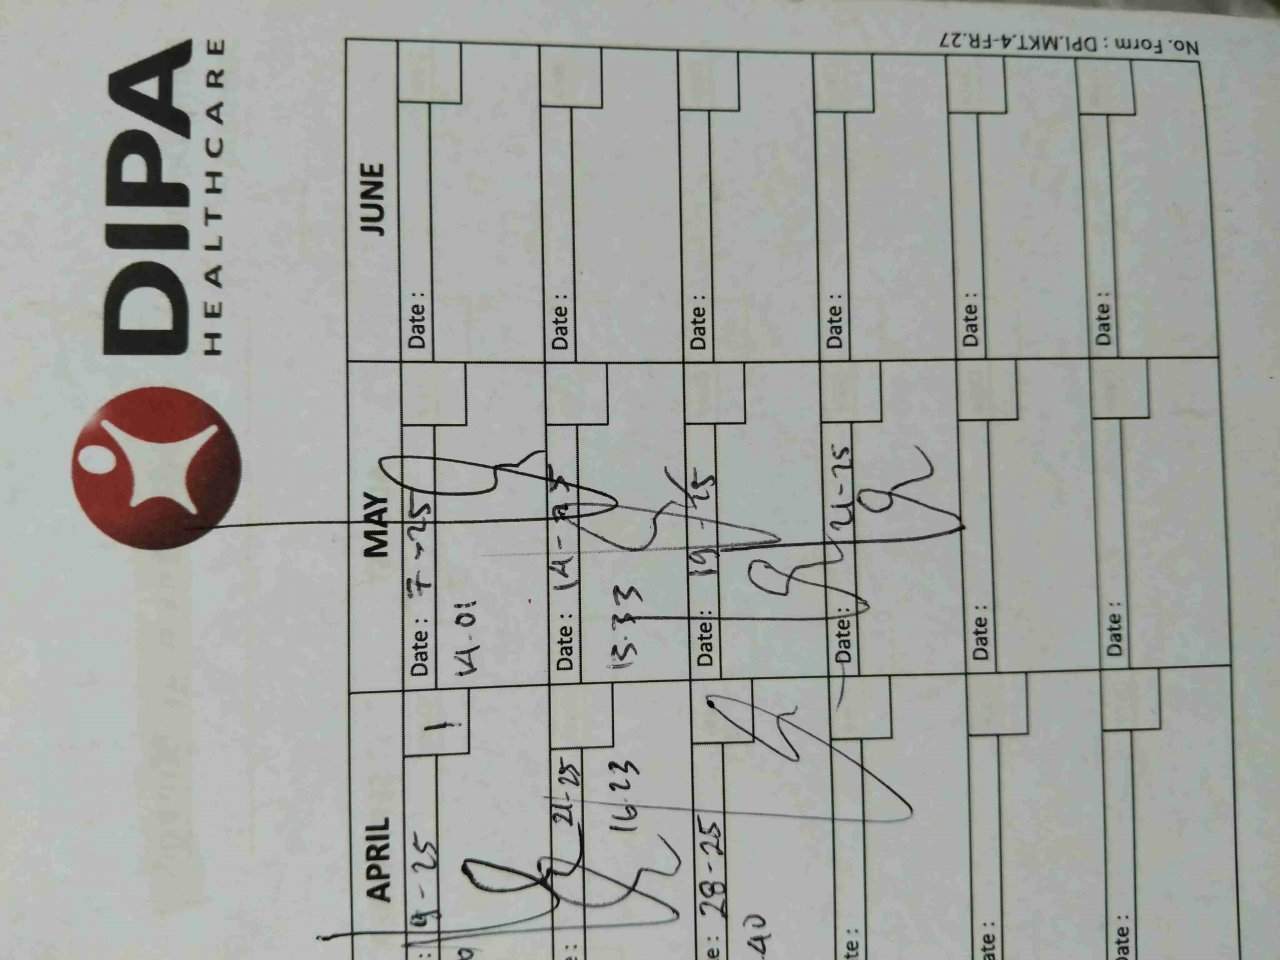 DIPA
HEALTHCARE
APRIL MAY JUNE
: 9-25 1
Date : 7-25
14.01
Date :
e : 21-25
16.23
Date : 14-25
13.33
Date :
e : 28-25
.40
Date : 19-25
Date :
te :
Date : 21-25
Date :
ate :
Date :
Date :
Date :
Date :
Date :
No. Form : DPI.MKT.4-FR.27